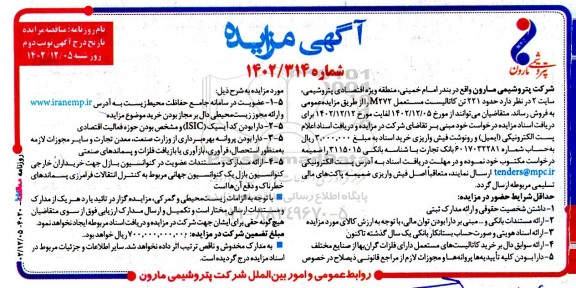 نام روزنامه: مناقصه مزایده
تاریخ درج آگهی نوبت دوم
روز شنبه ۱۴۰۲/۱۲/۰۵
آگهی مزایده
شماره ۱۴۰۲/۳۱۴
پتروشیمی مارون
شرکت پتروشیمی مارون واقع در بندر امام خمینی، منطقه ویژه اقتصادی پتروشیمی،
سایت ۲ در نظر دارد حدود ۲۲۱ تن کاتالیست مستعمل M۲۷۲ را از طریق مزایده عمومی
به فروش رساند. متقاضیان می‌توانند از مورخ ۱۴۰۲/۱۲/۰۵ لغایت مورخ ۱۴۰۲/۱۲/۱۲ برای
دریافت اسناد مزایده درخواست خود مبنی بر تقاضای شرکت در مزایده و دریافت اسناد اعلام
پست الکترونیکی (ایمیل) و رونوشت فیش واریزی خرید اسناد به مبلغ ۲،۰۰۰،۰۰۰ ریال
به حساب شماره ۶۱۰۱۷۰۳۲۲۸۱ بانک تجارت با شناسه بانکی ۳۱۱۵۰۱۵ را ضمیمه
درخواست مکتوب خود نموده و در مهلت دریافت اسناد به آدرس پست الکترونیکی
tenders@mpc.ir ارسال نمایند، متعاقباً اصل فیش واریزی ضمیمه پاکت‌های مالی
تسلیمی مربوطه ارسال گردد.
حداقل شرایط حضور در مزایده:
۱- داشتن شخصیت حقوقی و ارائه مدارک ثبتی
۲- ارائه مستندات بانکی و ... مبنی بر دارا بودن توان مالی، با توجه به ارزش کالای مورد مزایده
۳- ارائه اسناد هویتی و صورت‌حساب بستانکار بانکی یک سال گذشته تاکنون
۴- ارائه سوابق دال بر خرید کاتالیست‌های مستعمل دارای فلزات گران‌بها از صنایع مختلف
۵- دارا بودن کلیه تأییدیه‌ها پروانه‌ها و مجوزات لازم از مراجع قانونی ذیصلاح در خصوص
مورد مزایده به شرح ذیل:
۵-۱- عضویت در سامانه جامع حفاظت محیط‌زیست به آدرس www.iranemp.ir
و ارائه مجوز زیست‌محیطی دال بر مجاز بودن خرید موضوع مزایده
۵-۲- دارا بودن کد آیسیک (ISIC) و مشخص بودن حوزه فعالیت اقتصادی
۵-۳- دارا بودن پروانه بهره‌برداری از وزارت صنعت، معدن تجارت و سایر مجوزات لازمه
به‌منظور استحصال، فرآوری، بازآوری یا بازیافت فلزات و پسماندهای صنعتی
۵-۴- ارائه مدارک و مستندات عضویت در کنوانسیون بازل جهت خریداران خارجی
کنوانسیون بازل یک کنوانسیون جهانی مربوط به کنترل انتقالات فرامرزی پسماندهای
خطرناک و دفع آن‌ها است
با توجه به الزامات زیست‌محیطی و گمرکی، مزایده‌گزار در تائید یا رد هر یک از مدارک
و مستندات ارسالی مختار است و تکمیل و ارسال مدارک ارزیابی فوق از سوی متقاضیان
هیچ‌گونه حقی برای ایشان جهت شرکت در مزایده و دریافت اسناد مربوطه ایجاد نخواهد نمود.
مبلغ تضمین شرکت در مزایده: ۷،۰۰۰،۰۰۰،۰۰۰ ریال خواهد بود.
به مدارک مخدوش و ناقص ترتیب اثر داده نخواهد شد. سایر اطلاعات و جزئیات مربوط در
اسناد مزایده درج گردیده است.
روابط عمومی و امور بین‌الملل شرکت پتروشیمی مارون